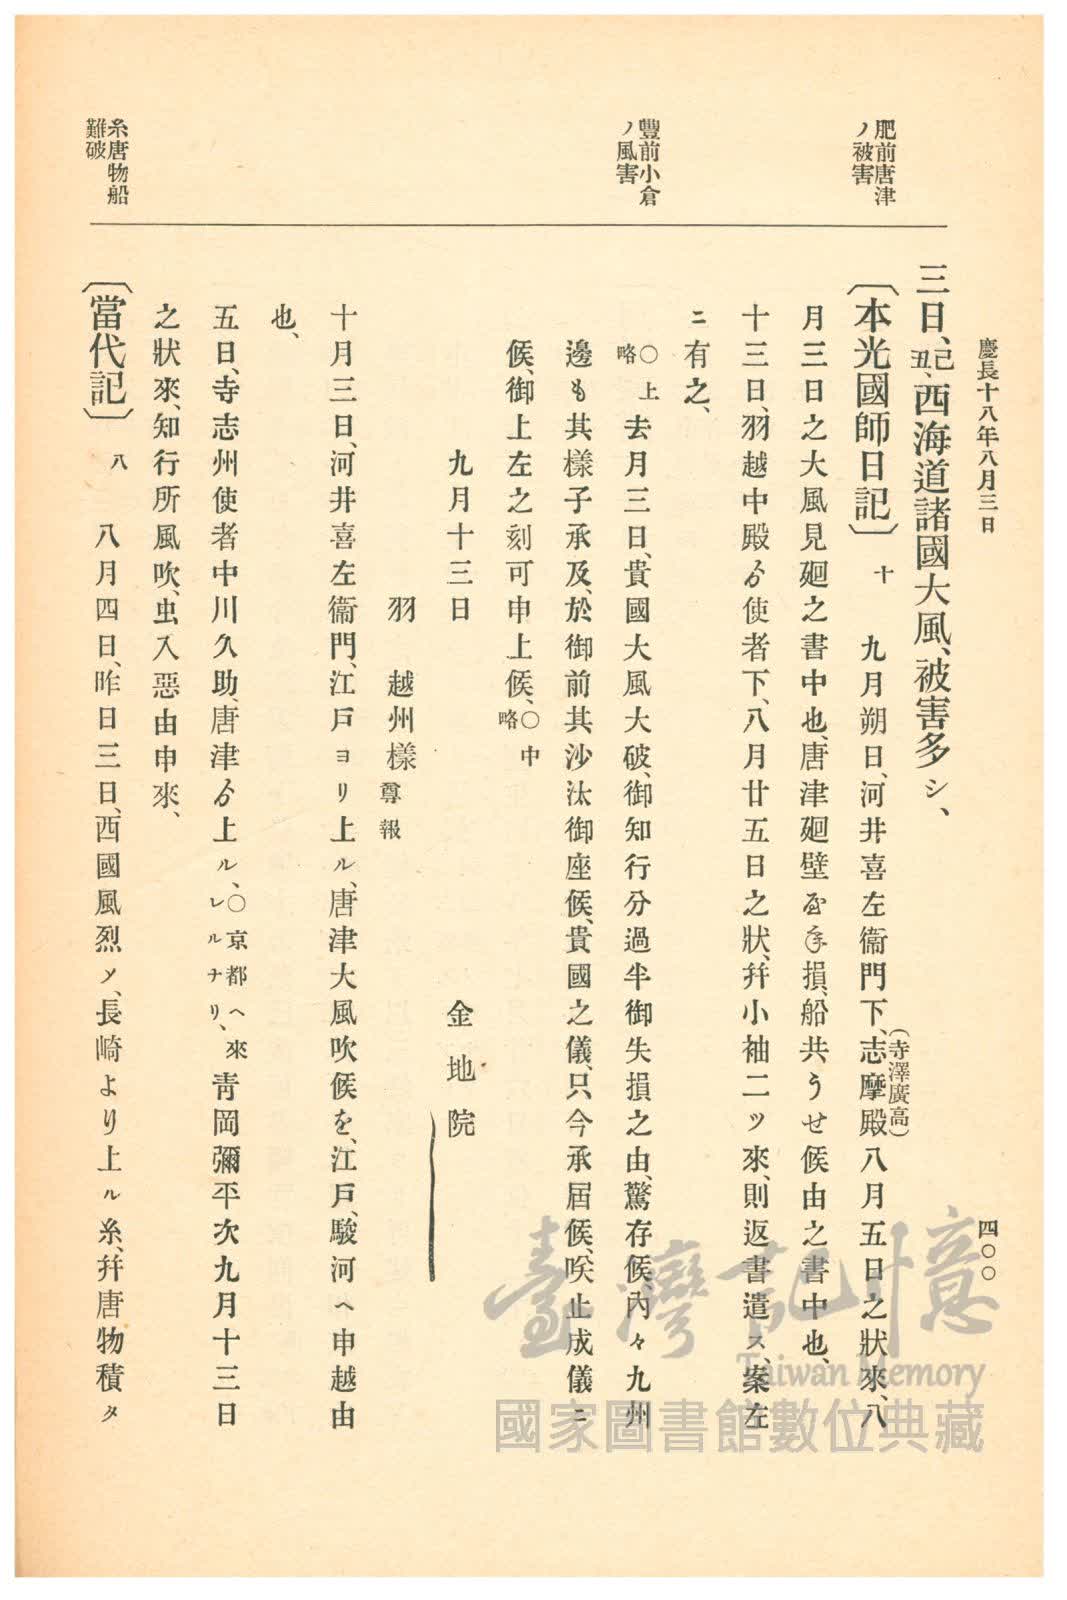 慶長十八年八月三日
四〇〇
肥前唐津
ノ被害
豐前小倉
ノ風害
糸唐物船
難破
三日、己丑、西海道諸國大風、被害多シ、
〔本光國師日記〕 十 九月朔日、河井喜左衞門下、志摩殿(寺澤廣高)八月五日之狀來、八
月三日之大風見廻之書中也、唐津廻壁以下損、船共うせ候由之書中也、
十三日、羽越中殿ゟ使者下、八月廿五日之狀、幷小袖二ツ來、則返書遣ス、案左
ニ有之、
〇上略 去月三日、貴國大風大破、御知行分過半御失損之由、驚存候、內々九州
邊も其樣子承及、於御前其沙汰御座候、貴國之儀、只今承屆候、咲止成儀ニ
候、御上左之刻可申上候、〇中略
九月十三日
金地院
羽 越州樣 尊報
十月三日、河井喜左衞門、江戶ヨリ上ル、唐津大風吹候を、江戶、駿河へ申越由
也、
五日、寺志州使者中川久助、唐津ゟ上ル、〇京都へ來レルナリ、靑岡彌平次九月十三日
之狀來、知行所風吹、虫入惡由申來、
〔當代記〕 八 八月四日、昨日三日、西國風烈ノ、長崎より上ル糸、幷唐物積タ
臺灣記憶
Taiwan Memory
國家圖書館數位典藏